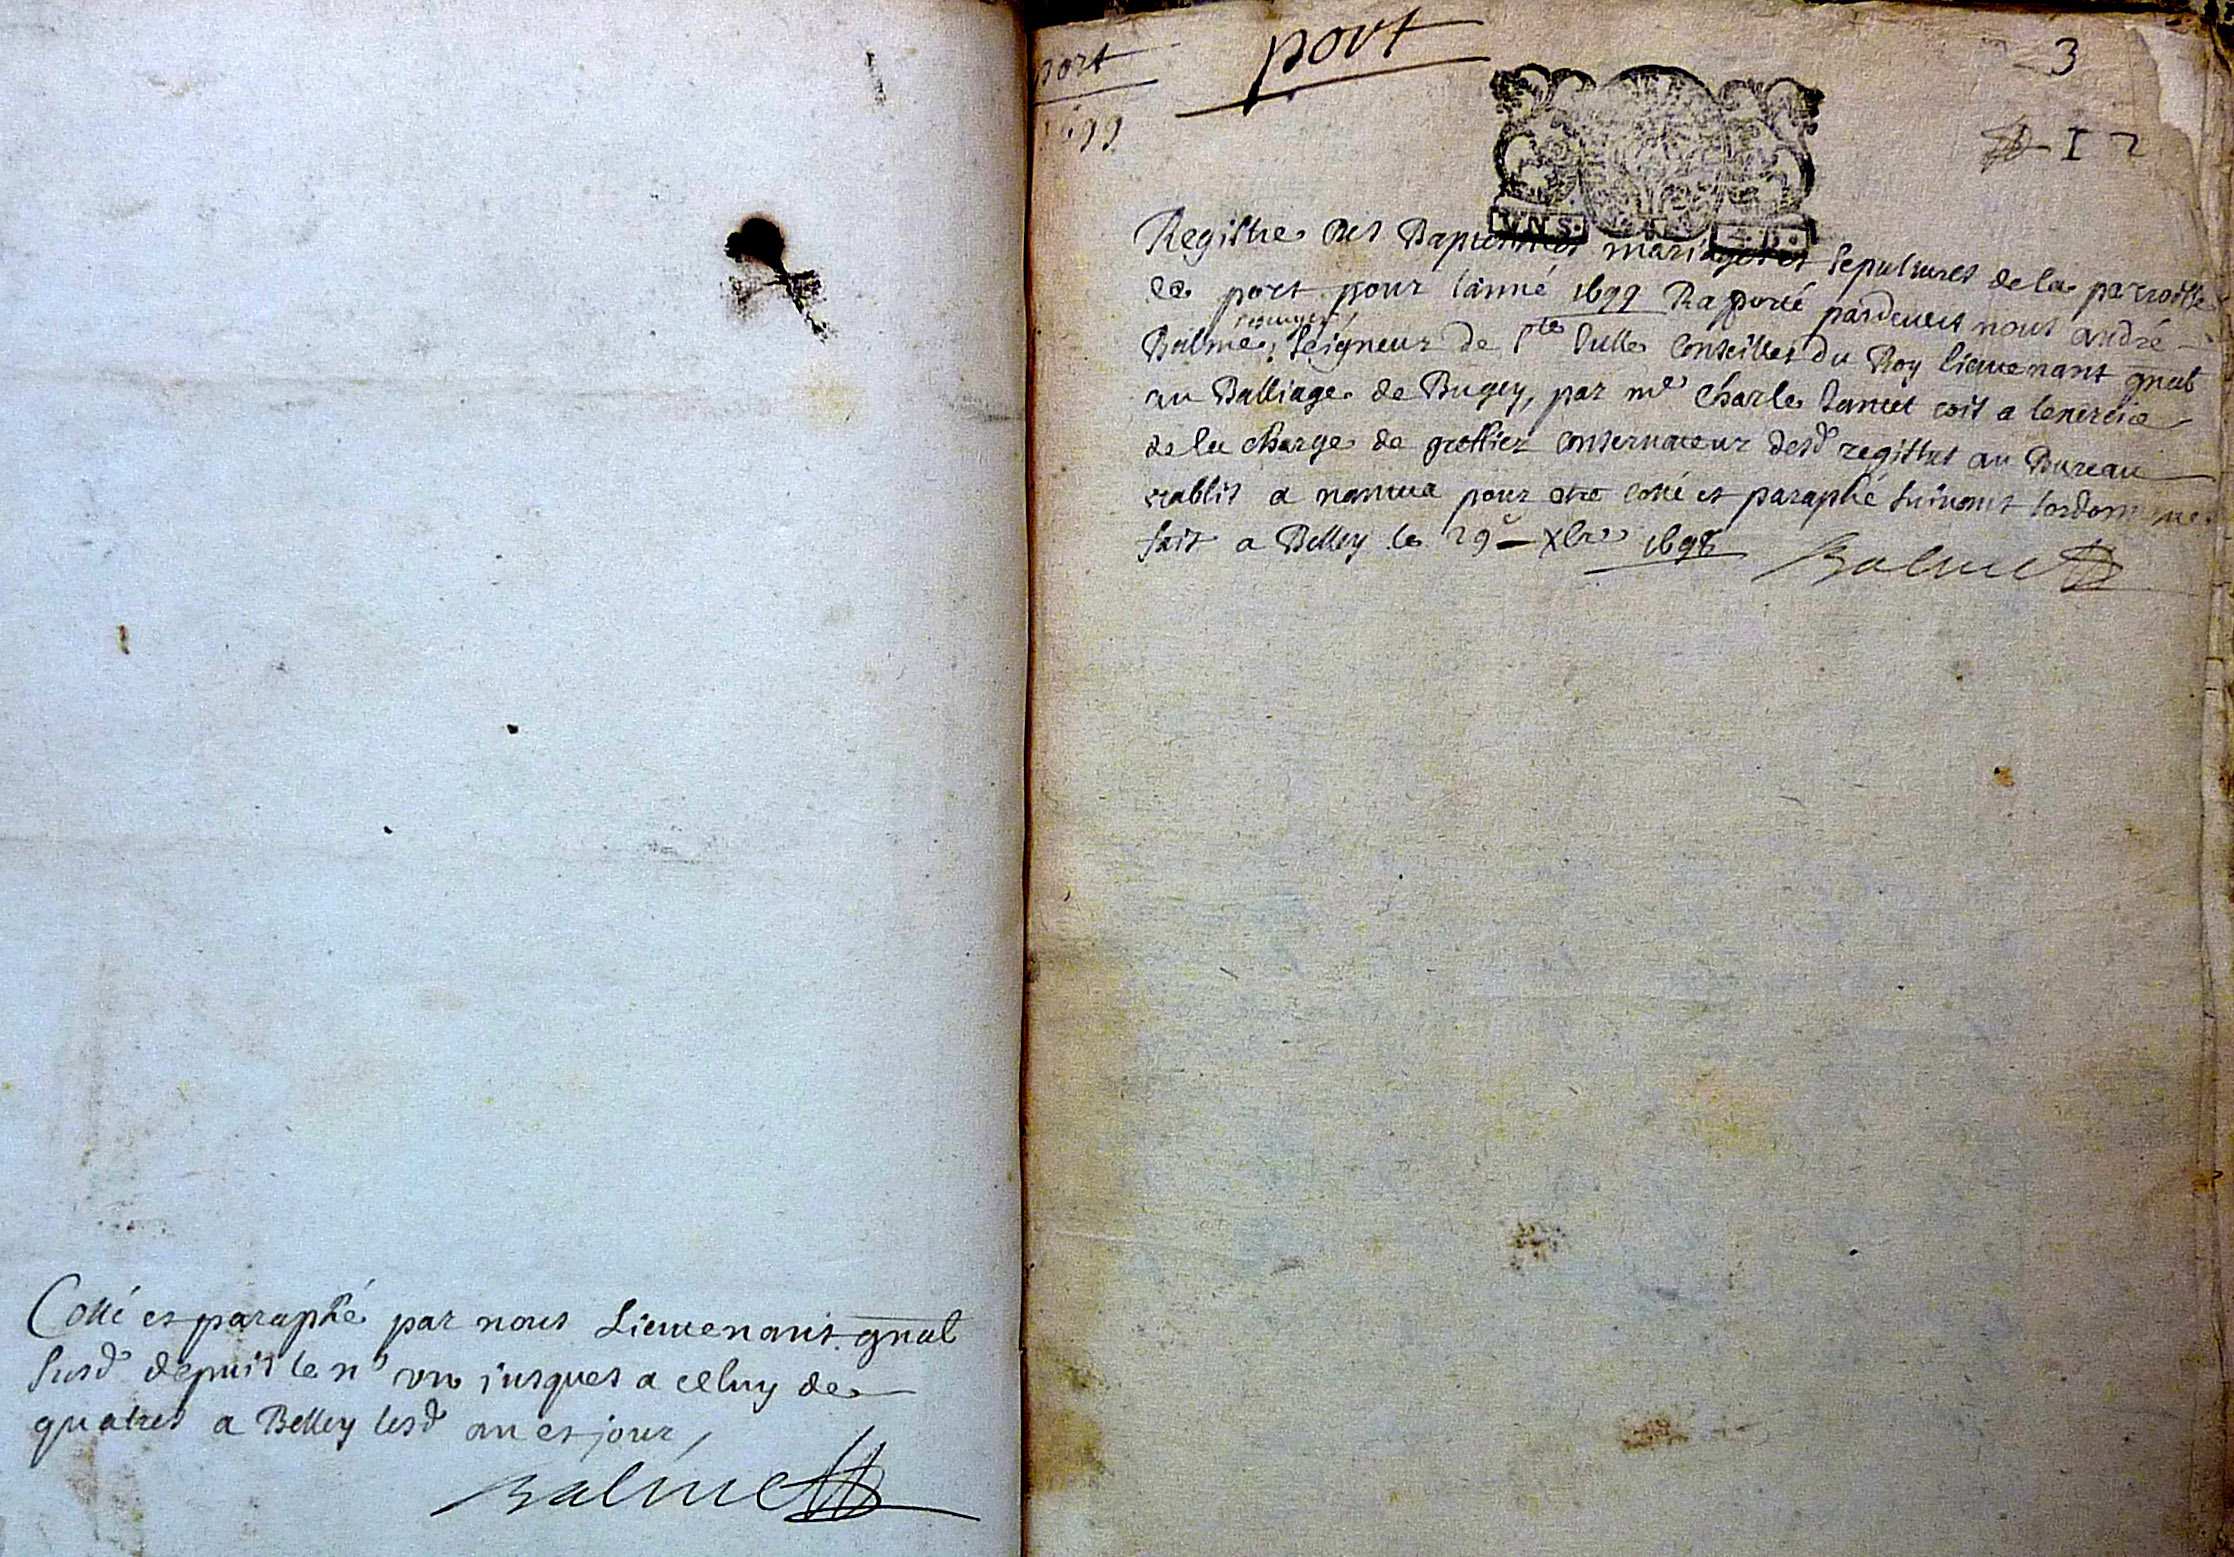 Cotté et paraphé par nous Lieutenant gnal
susd depuis le n° un jusques a celuy de
quatres a Belley lesd an et jour
Balme
port
1699
port
3
I 2
Registre des Baptesmes mariages et sepultures de la parroisse
de port pour l'anné 1699 Rapporté pardevers nous André
Balme, seigneur de Ste Julle Conseiller du Roy lieutenant gnal
au Balliage de Bugey, par me Charle comit a lexercice
de la charge de greffier conservateur desd registres au Bureau
establit a nantua pour etre cotté et paraphé suivant lordonnance
fait a Belley le 29e Xbre 1698
Balme